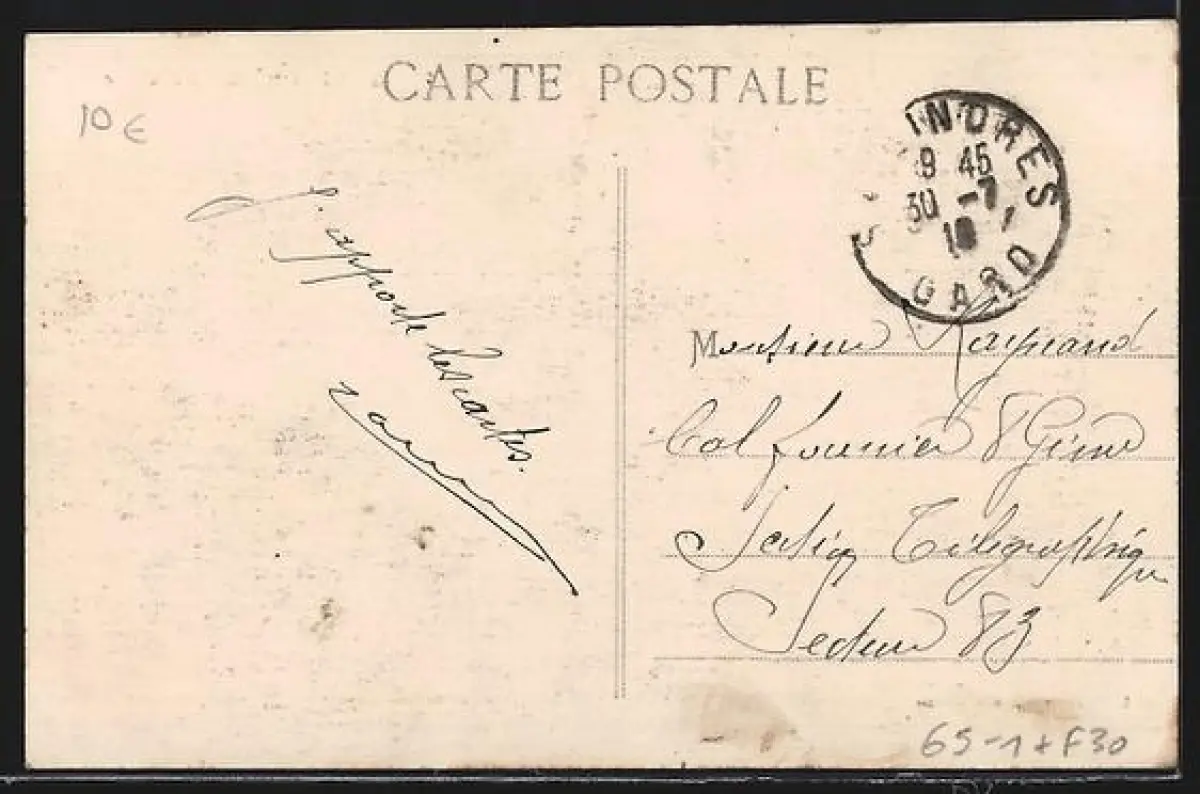 CARTE POSTALE
10 €
INDRES
9 45
30 -7
GARD
J'apporte les cartes.
Monsieur Raynaud
Col fournier 8 Génie
Section Télégraphique
Secteur 83
65-1 + F30